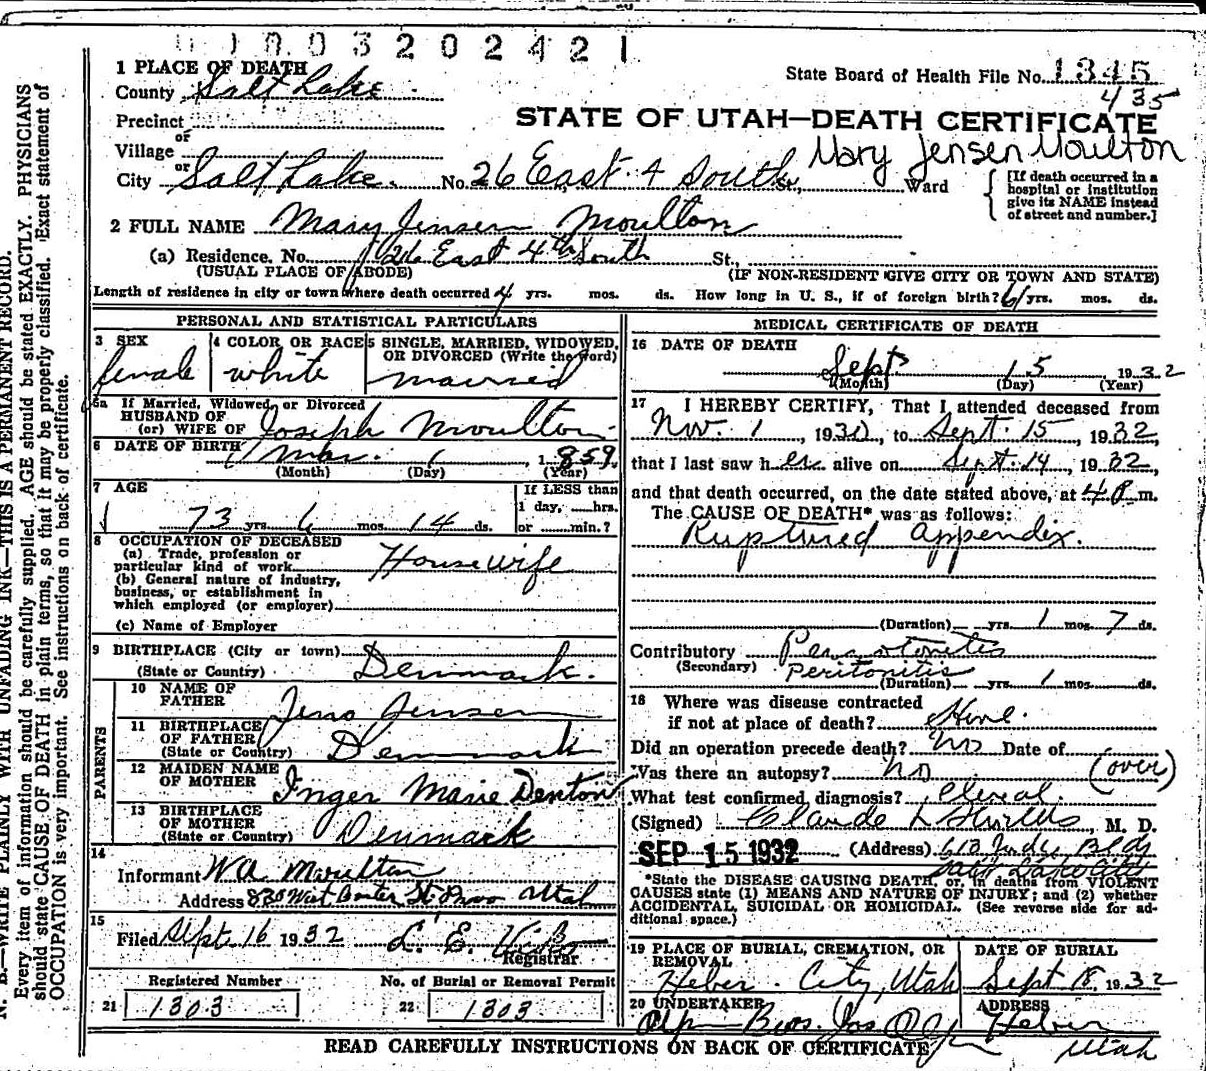 03202421
1 PLACE OF DEATH
County Salt Lake
State Board of Health File No. 1345
435
Precinct
or
Village
STATE OF UTAH—DEATH CERTIFICATE
Mary Jensen Moulton
or
City Salt Lake. No. 26 East 4 South St., Ward
[If death occurred in a
hospital or institution
give its NAME instead
of street and number.]
2 FULL NAME Mary Jensen Moulton
(a) Residence. No. 26 East 4th South St.,
(USUAL PLACE OF ABODE) (IF NON-RESIDENT GIVE CITY OR TOWN AND STATE)
Length of residence in city or town where death occurred 4 yrs. mos. ds. How long in U. S., if of foreign birth? 61 yrs. mos. ds.
PERSONAL AND STATISTICAL PARTICULARS
3 SEX
female
4 COLOR OR RACE
white
5 SINGLE, MARRIED, WIDOWED,
OR DIVORCED (Write the word)
married
5a If Married, Widowed, or Divorced
HUSBAND OF
(or) WIFE OF Joseph Moulton
6 DATE OF BIRTH Mar. 1, 1859
(Month) (Day) (Year)
7 AGE
73 yrs. 6 mos. 14 ds.
If LESS than
1 day, hrs.
or min.?
8 OCCUPATION OF DECEASED
(a) Trade, profession or
particular kind of work Housewife
(b) General nature of industry,
business, or establishment in
which employed (or employer)
(c) Name of Employer
9 BIRTHPLACE (City or town)
(State or Country) Denmark.
PARENTS
10 NAME OF
FATHER Jens Jensen
11 BIRTHPLACE
OF FATHER
(State or Country) Denmark
12 MAIDEN NAME
OF MOTHER Inger Marie Denton
13 BIRTHPLACE
OF MOTHER
(State or Country) Denmark
14
Informant W A Moulton
Address 835 West Center St. Provo Utah
15
Filed Sept 16 1932 L. E.
Registrar
Registered Number
21 1303
No. of Burial or Removal Permit
22 1303
MEDICAL CERTIFICATE OF DEATH
16 DATE OF DEATH
Sept 15 1932
(Month) (Day) (Year)
17 I HEREBY CERTIFY, That I attended deceased from
Nov. 1, 1930, to Sept. 15, 1932,
that I last saw her alive on Sept. 14, 1932,
and that death occurred, on the date stated above, at 4 P. m.
The CAUSE OF DEATH* was as follows:
Ruptured appendix.
(Duration) yrs. 1 mos. 7 ds.
Contributory Peristonitis
(Secondary) Peritonitis
(Duration) yrs. 1 mos. ds.
18 Where was disease contracted
if not at place of death?
Did an operation precede death? No Date of
Was there an autopsy? no (over)
What test confirmed diagnosis?
(Signed) Claude L Shields, M. D.
SEP 15 1932 (Address) Judge Bldg
Salt Lake City
*State the DISEASE CAUSING DEATH, or, in deaths from VIOLENT
CAUSES state (1) MEANS AND NATURE OF INJURY; and (2) whether
ACCIDENTAL, SUICIDAL OR HOMICIDAL. (See reverse side for ad-
ditional space.)
19 PLACE OF BURIAL, CREMATION, OR
REMOVAL
Heber City, Utah
DATE OF BURIAL
Sept 18, 1932
20 UNDERTAKER
Bros.
ADDRESS
Heber
Utah
READ CAREFULLY INSTRUCTIONS ON BACK OF CERTIFICATE
N. B.—WRITE PLAINLY WITH UNFADING INK—THIS IS A PERMANENT RECORD.
Every item of information should be carefully supplied. AGE should be stated EXACTLY. PHYSICIANS
should state CAUSE OF DEATH in plain terms, so that it may be properly classified. Exact statement of
OCCUPATION is very important. See instructions on back of certificate.